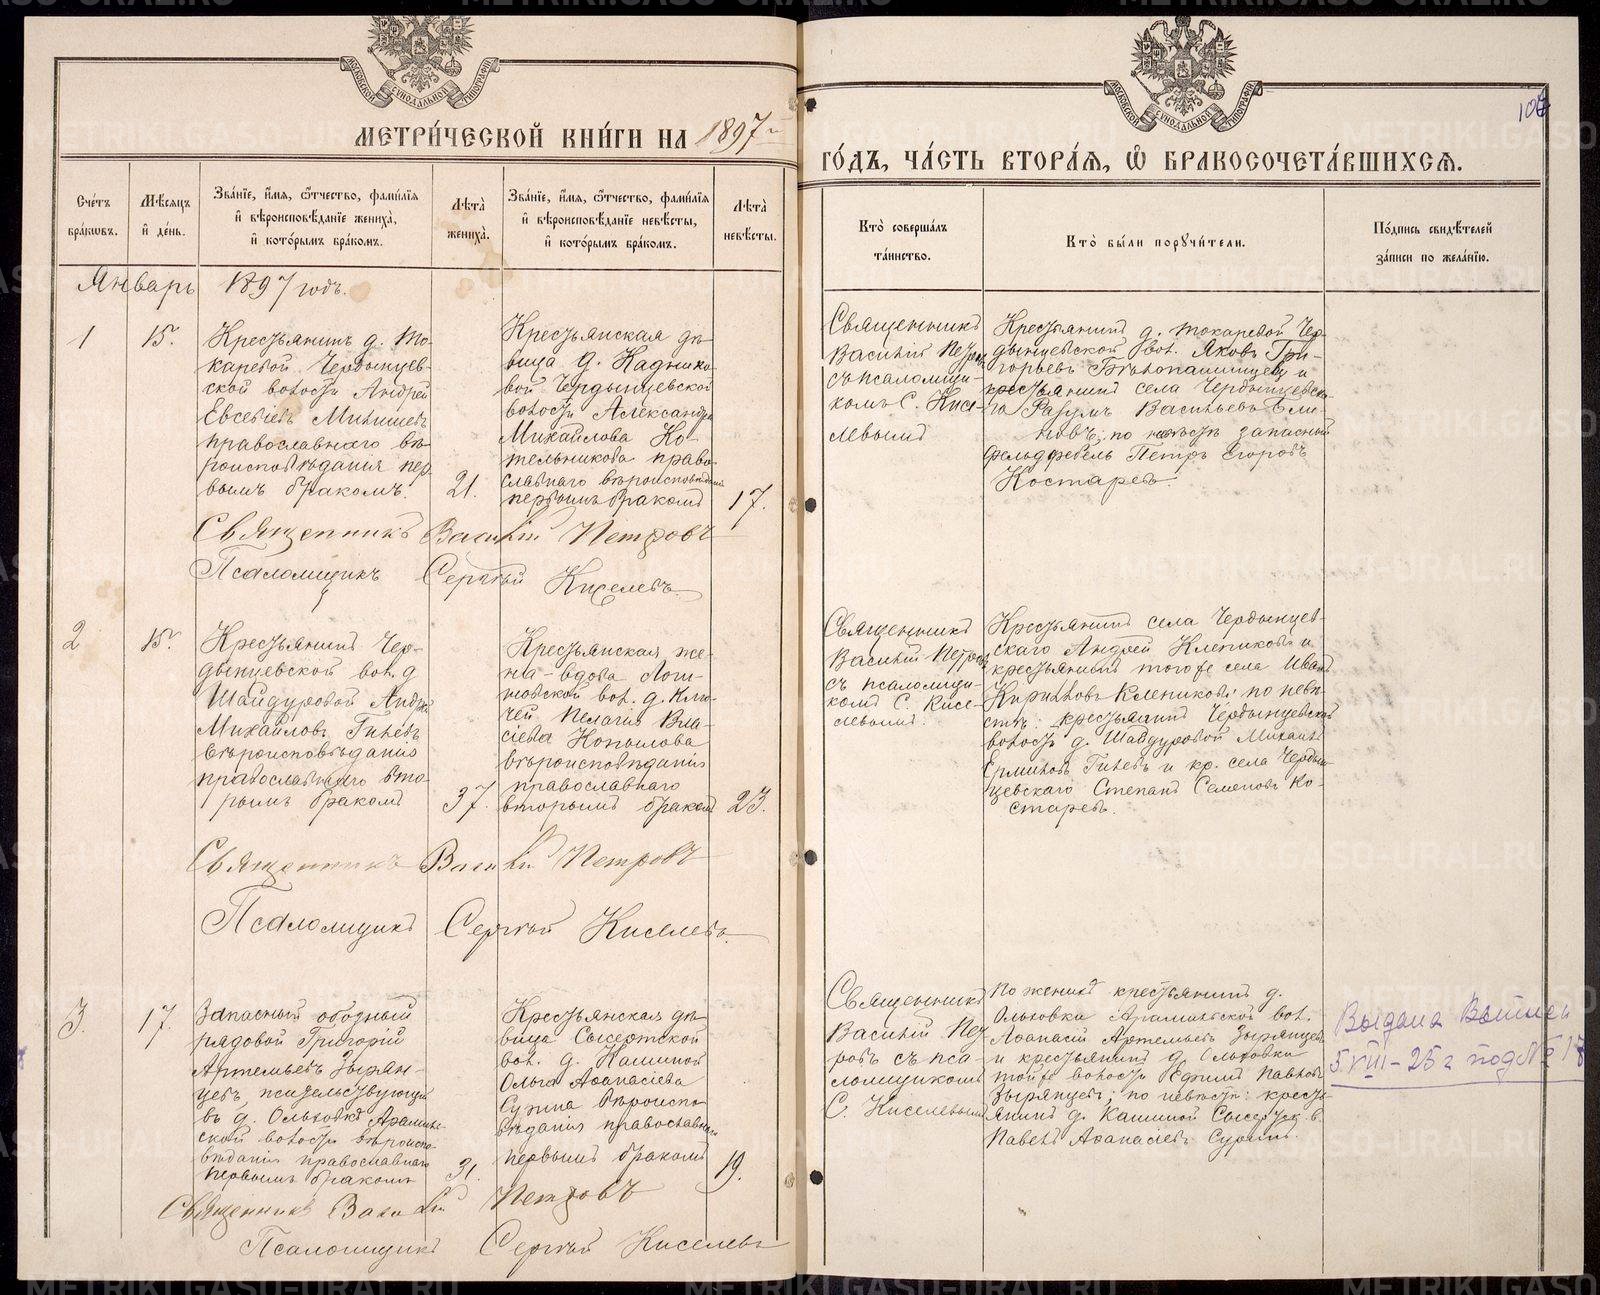 МЕТРИ́ЧЕСКОЙ КНИ́ГИ НА 1897й
ГО́ДЪ, ЧА́СТЬ ВТОРА́Я, Ѡ҆ БРАКОСОЧЕТА́ВШИХСЯ.
МОСКОВСКОЙ СѴНОДАЛЬНОЙ ТИПОГРАФІИ
МОСКОВСКОЙ СѴНОДАЛЬНОЙ ТИПОГРАФІИ
Сче́тъ бра́ковъ.
Мѣ́сяцъ и҆ де́нь.
Зва́нїе, и҆́мя, ѻ҆́тчество, фами́лїя
и҆ вѣроисповѣ́данїе жениха̀,
и҆ кото́рымъ бра́комъ.
Лѣта̀ жениха̀.
Зва́нїе, и҆́мя, ѻ҆́тчество, фами́лїя
и҆ вѣроисповѣ́данїе невѣ́сты,
и҆ кото́рымъ бра́комъ.
Лѣта̀ невѣ́сты.
Кто̀ соверша́лъ та́инство.
Кто̀ бы́ли поручи́тели.
По́дпись свидѣ́телей
за́писи по жела́нїю.
Январь 1897 годъ.
1
15.
Крестьянинъ д. То-
каревой Чердынцев-
ской волости Андрей
Евсеевъ
православнаго вѣ-
роисповѣданія пер
вымъ бракомъ.
21.
Крестьянская дѣ-
вица д. Каднико-
вой Чердынцевской
волости Александра
Михайлова Ко-
тельникова право-
славнаго вѣроисповѣданія
первымъ бракомъ
17.
Священникъ
Василій Петровъ
съ псаломщи-
комъ С. Кисе-
левымъ
Крестьянинъ д. Токаревой Чер-
дынцевской вол. Яковъ Гри-
горьевъ Бѣлопашинцевъ и
крестьянинъ села Чердынцевска-
го Разумъ Васильевъ Ели-
новъ; по невѣстѣ запасный
фельдфебель Петръ Егоровъ
Костаревъ.
Священникъ Василій Петровъ
Псаломщикъ Сергѣй Киселевъ
2
15.
Крестьянинъ Чер-
дынцевской вол. д
Шайдуровой Андрей
Михайловъ Гилевъ
вѣроисповѣданія
православнаго вто-
рымъ бракомъ
37.
Крестьянская же-
на-вдова Логи-
новской вол. д. Клю-
чей Пелагія Вла-
сіева Копылова
вѣроисповѣданія
православнаго
вторымъ бракомъ
23.
Священникъ
Василій Петровъ
съ псаломщи-
комъ С. Кисе-
левымъ.
Крестьянинъ села Чердынцев-
скаго Андрей Клепиковъ и
крестьянинъ того же села Иванъ
Кириловъ Клепиковъ; по невѣ-
стѣ: крестьянинъ Чердынцевской
волости д. Шайдуровой Михаилъ
Ермиловъ Гилевъ и кр. села Чердын-
цевскаго Степанъ Семеновъ Ко-
старевъ.
Священникъ Василій Петровъ
Псаломщикъ Сергѣй Киселевъ.
3.
17.
Запасный обозный
рядовой Григорій
Артемьевъ Зырян-
цевъ,
въ д. Ольховкѣ Арамиль-
ской волости вѣроиспо-
вѣданія православнаго
первымъ бракомъ
31.
Крестьянская дѣ-
вица Сысертской
вол. д. Кашиной
Ольга Аѳанасіева
Сурина вѣроиспо-
вѣданія православнаго
первымъ бракомъ
19.
Священникъ
Василій Пет-
ровъ съ пса-
ломщикомъ
С. Киселевымъ
По женихѣ крестьянинъ д.
Ольховки Арамильской вол.
Аѳанасій Артемьевъ Зырянцевъ
и крестьянинъ д. Ольховки
той же волости Ефимъ Павловъ
Зырянцевъ; по невѣстѣ: кресть-
янинъ д. Кашиной Сысертск. в.
Павелъ Аѳанасіевъ Суринъ.
Выдана Выпись
5 VIII-25 г под № 18
Священникъ Василій Петровъ
Псаломщикъ Сергѣй Киселевъ
METRIKI.GASO-URAL.RU